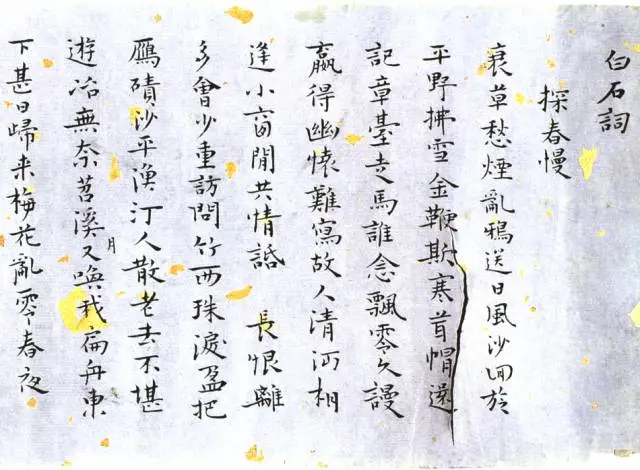 白石詞
探春慢
衰草愁煙亂鴉送日風沙回旋
平野拂雪金鞭欺寒茸帽還
記章臺走馬誰念飄零久謾
贏得幽懷難寫故人清沔相
逢小窗閒共情話 長恨離
多會少重訪問竹西珠淚盈把
鴈磧沙平漁汀人散老去不堪
遊冶無奈苕溪月又喚我扁舟東
下甚日歸来梅花亂零春夜